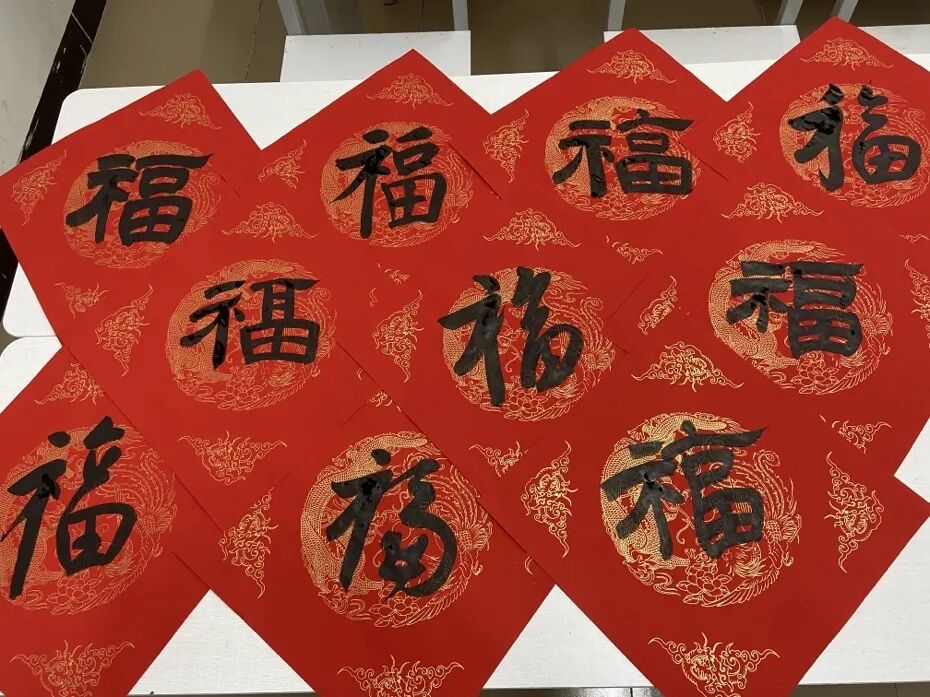 福
福
福
福
福
福
福
福
福
福